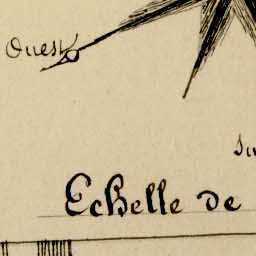 Ouest
Echelle de